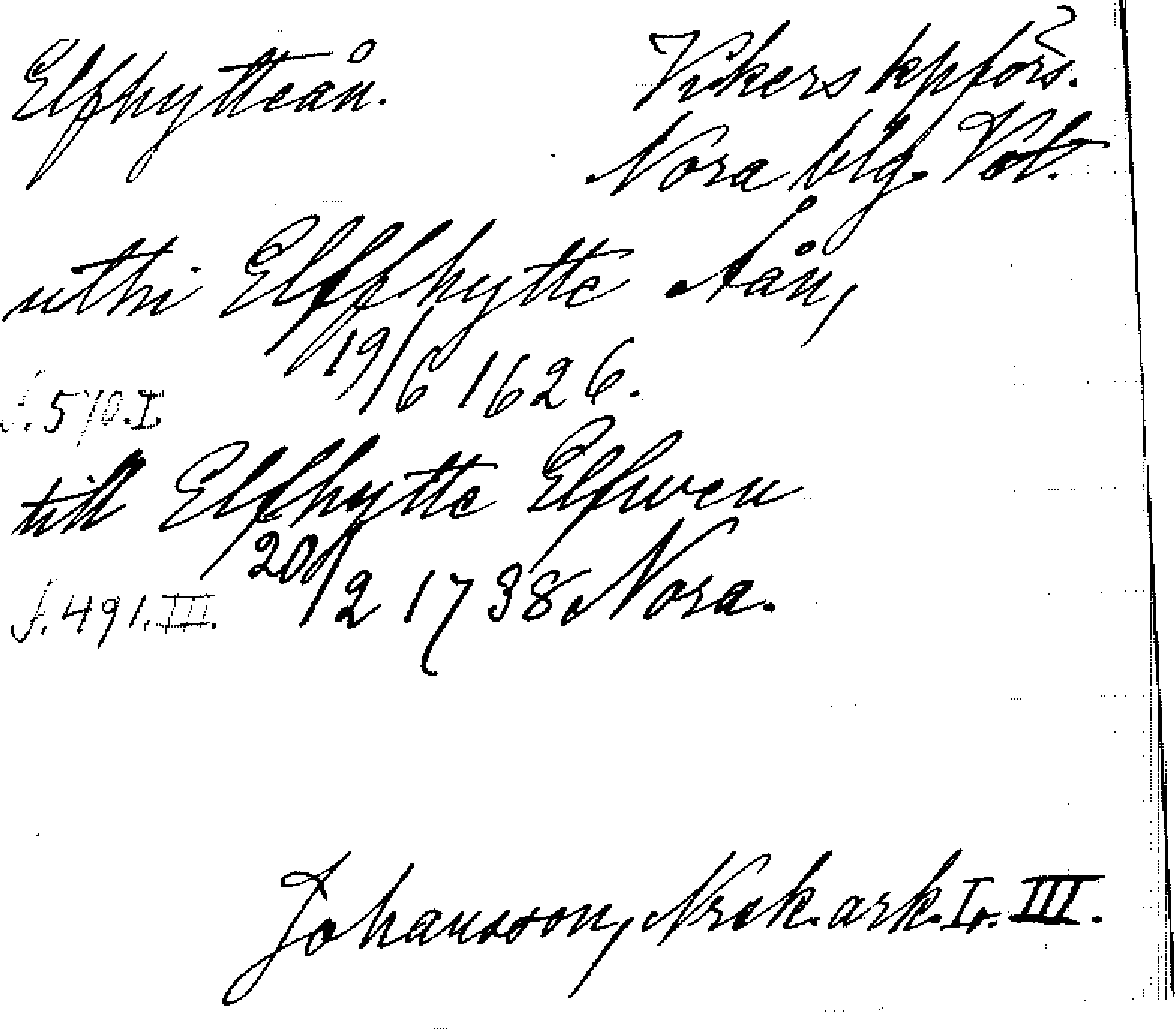 Elfhytteån. Vikers kpförs.
Nora blg. Vst.
uthi Elffhytte Åån,
19/6 1626.
s. 570. I.
till Elfhytte Elfwen
20/2 1738 Nora.
s. 491. III.
Johansson, Nrck. ark. I. III.